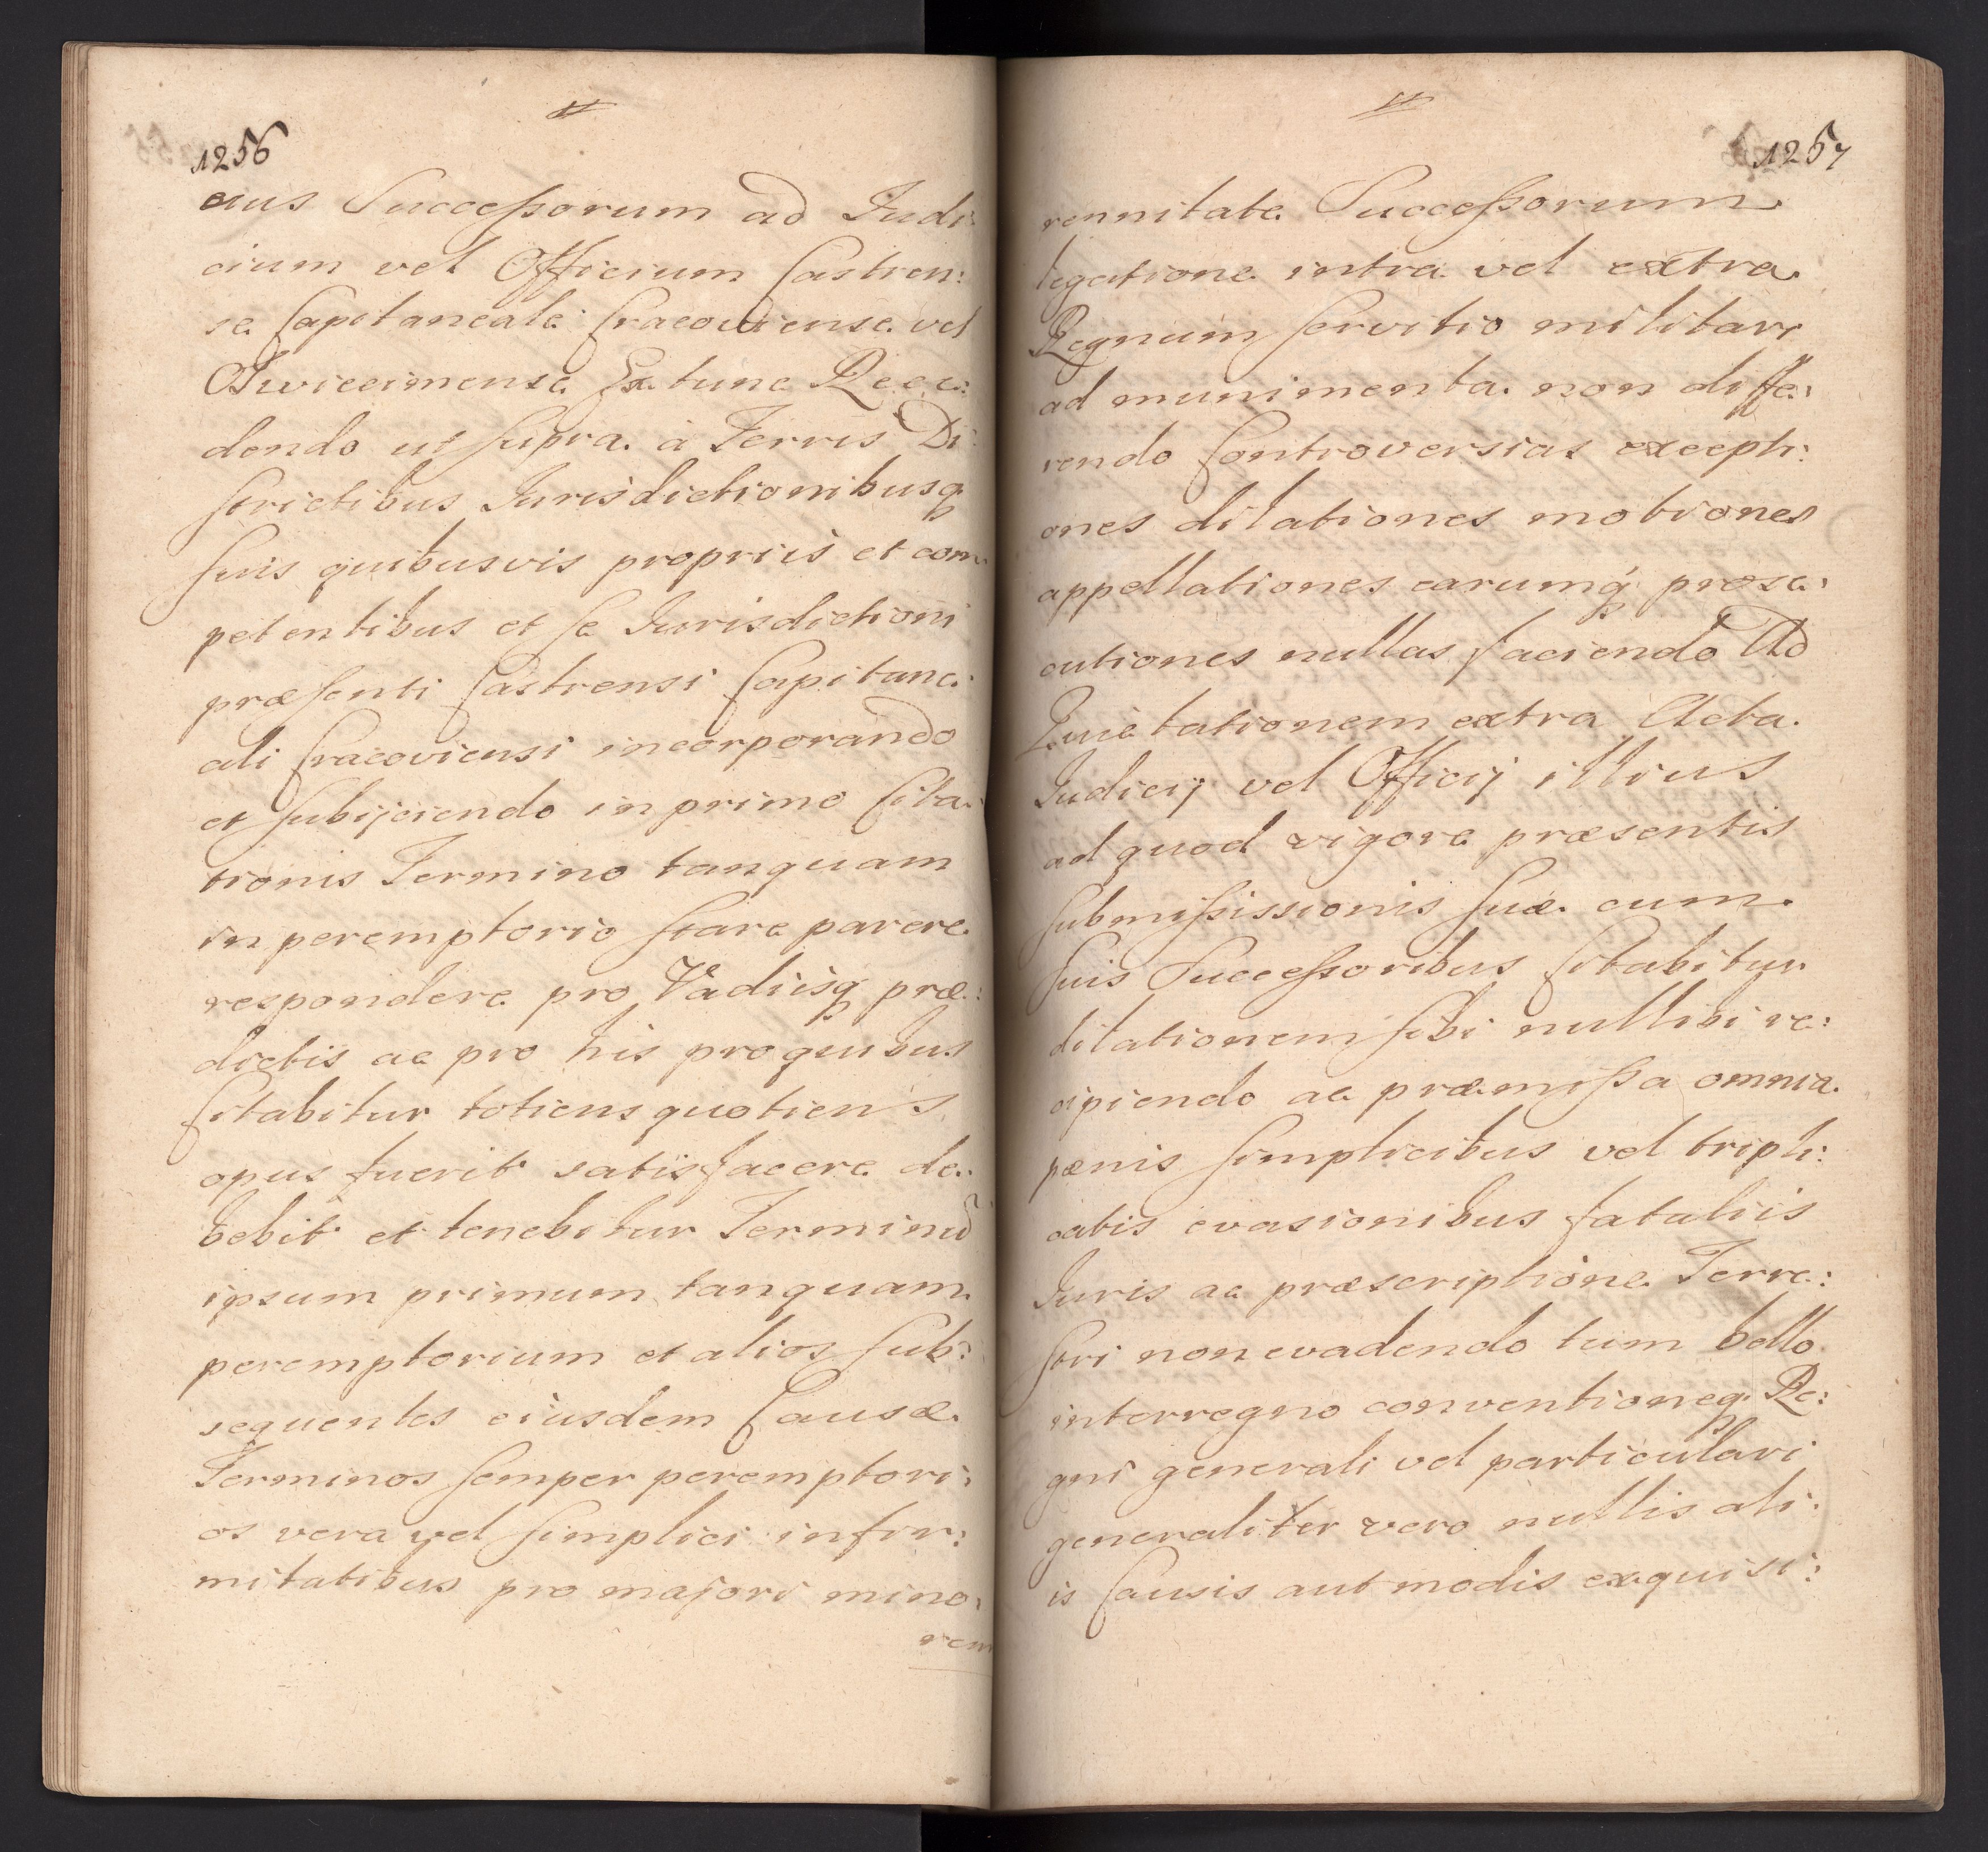 1256
eius Successorum ad Judi:
cium vel Officium Castren:
se Capitaneale Cracoviense vel
Oswiecimense Ex tunc Rece:
dendo ut supra à Terris Di:
strictibus Jurisdictionibusq
suis quibusvis propriis et com
petentibus et se Jurisdictioni
præsenti Castrensi Capitane:
ali Cracoviensi incorporando
et subijciendo in primo Cita:
tionis Termino tanquam
in peremptorio stare parere
respondere pro Vadiisq præ:
dictis ac pro his pro quibus
Citabitur totiens quotiens
opus fuerit satisfacere de:
bebit et tenebitur Terminū
ipsum primum tanquam
peremptorium et alios sub:
sequentes eiusdem Causæ
Terminos semper peremptori:
os vera vel simplici infir:
mitatibus pro majori mino:
rem
1257
rennitate Successorum
legatione intra vel extra
Regnum servitio militari
ad munimenta non diffe:
rendo Controversias excepti:
ones dilationes motiones
appellationes earumq prose:
cutiones nullas faciendo Ad
Quietationem extra Acta
Judicij vel Officij illius
ad quod vigore præsentis
submississionis suæ cum
suis Successoribus Citabitur
dilationem sibi nullibi re:
cipiendo ac præmissa omnia
pœnis simplicibus vel tripli:
catis evasionibus fataliis
Juris ac præscriptione Terre:
stri non evadendo tum bello
interregno conventioneq Re:
gni generali vel particulari
generaliter vero nullis ali:
is Causis aut modis exquisi: